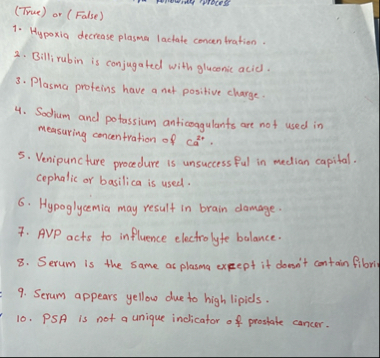 following process
(True) or (False)
1. Hypoxia decrease plasma lactate concentration.
2. Billirubin is conjugated with gluconic acid.
3. Plasma proteins have a net positive charge.
4. Sodium and potassium anticoagulants are not used in
measuring concentration of Ca²⁺.
5. Venipuncture procedure is unsuccessful in median capital.
cephalic or basilica is used.
6. Hypoglycemia may result in brain damage.
7. AVP acts to influence electrolyte balance.
8. Serum is the same as plasma except it doesn't contain fibri
9. Serum appears yellow due to high lipids.
10. PSA is not a unique indicator of prostate cancer.